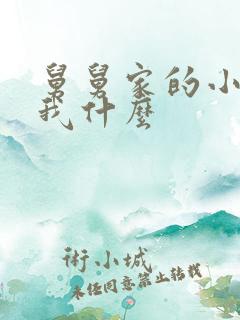 舅舅家的小
我什麼
術小城
未经同意禁止转载